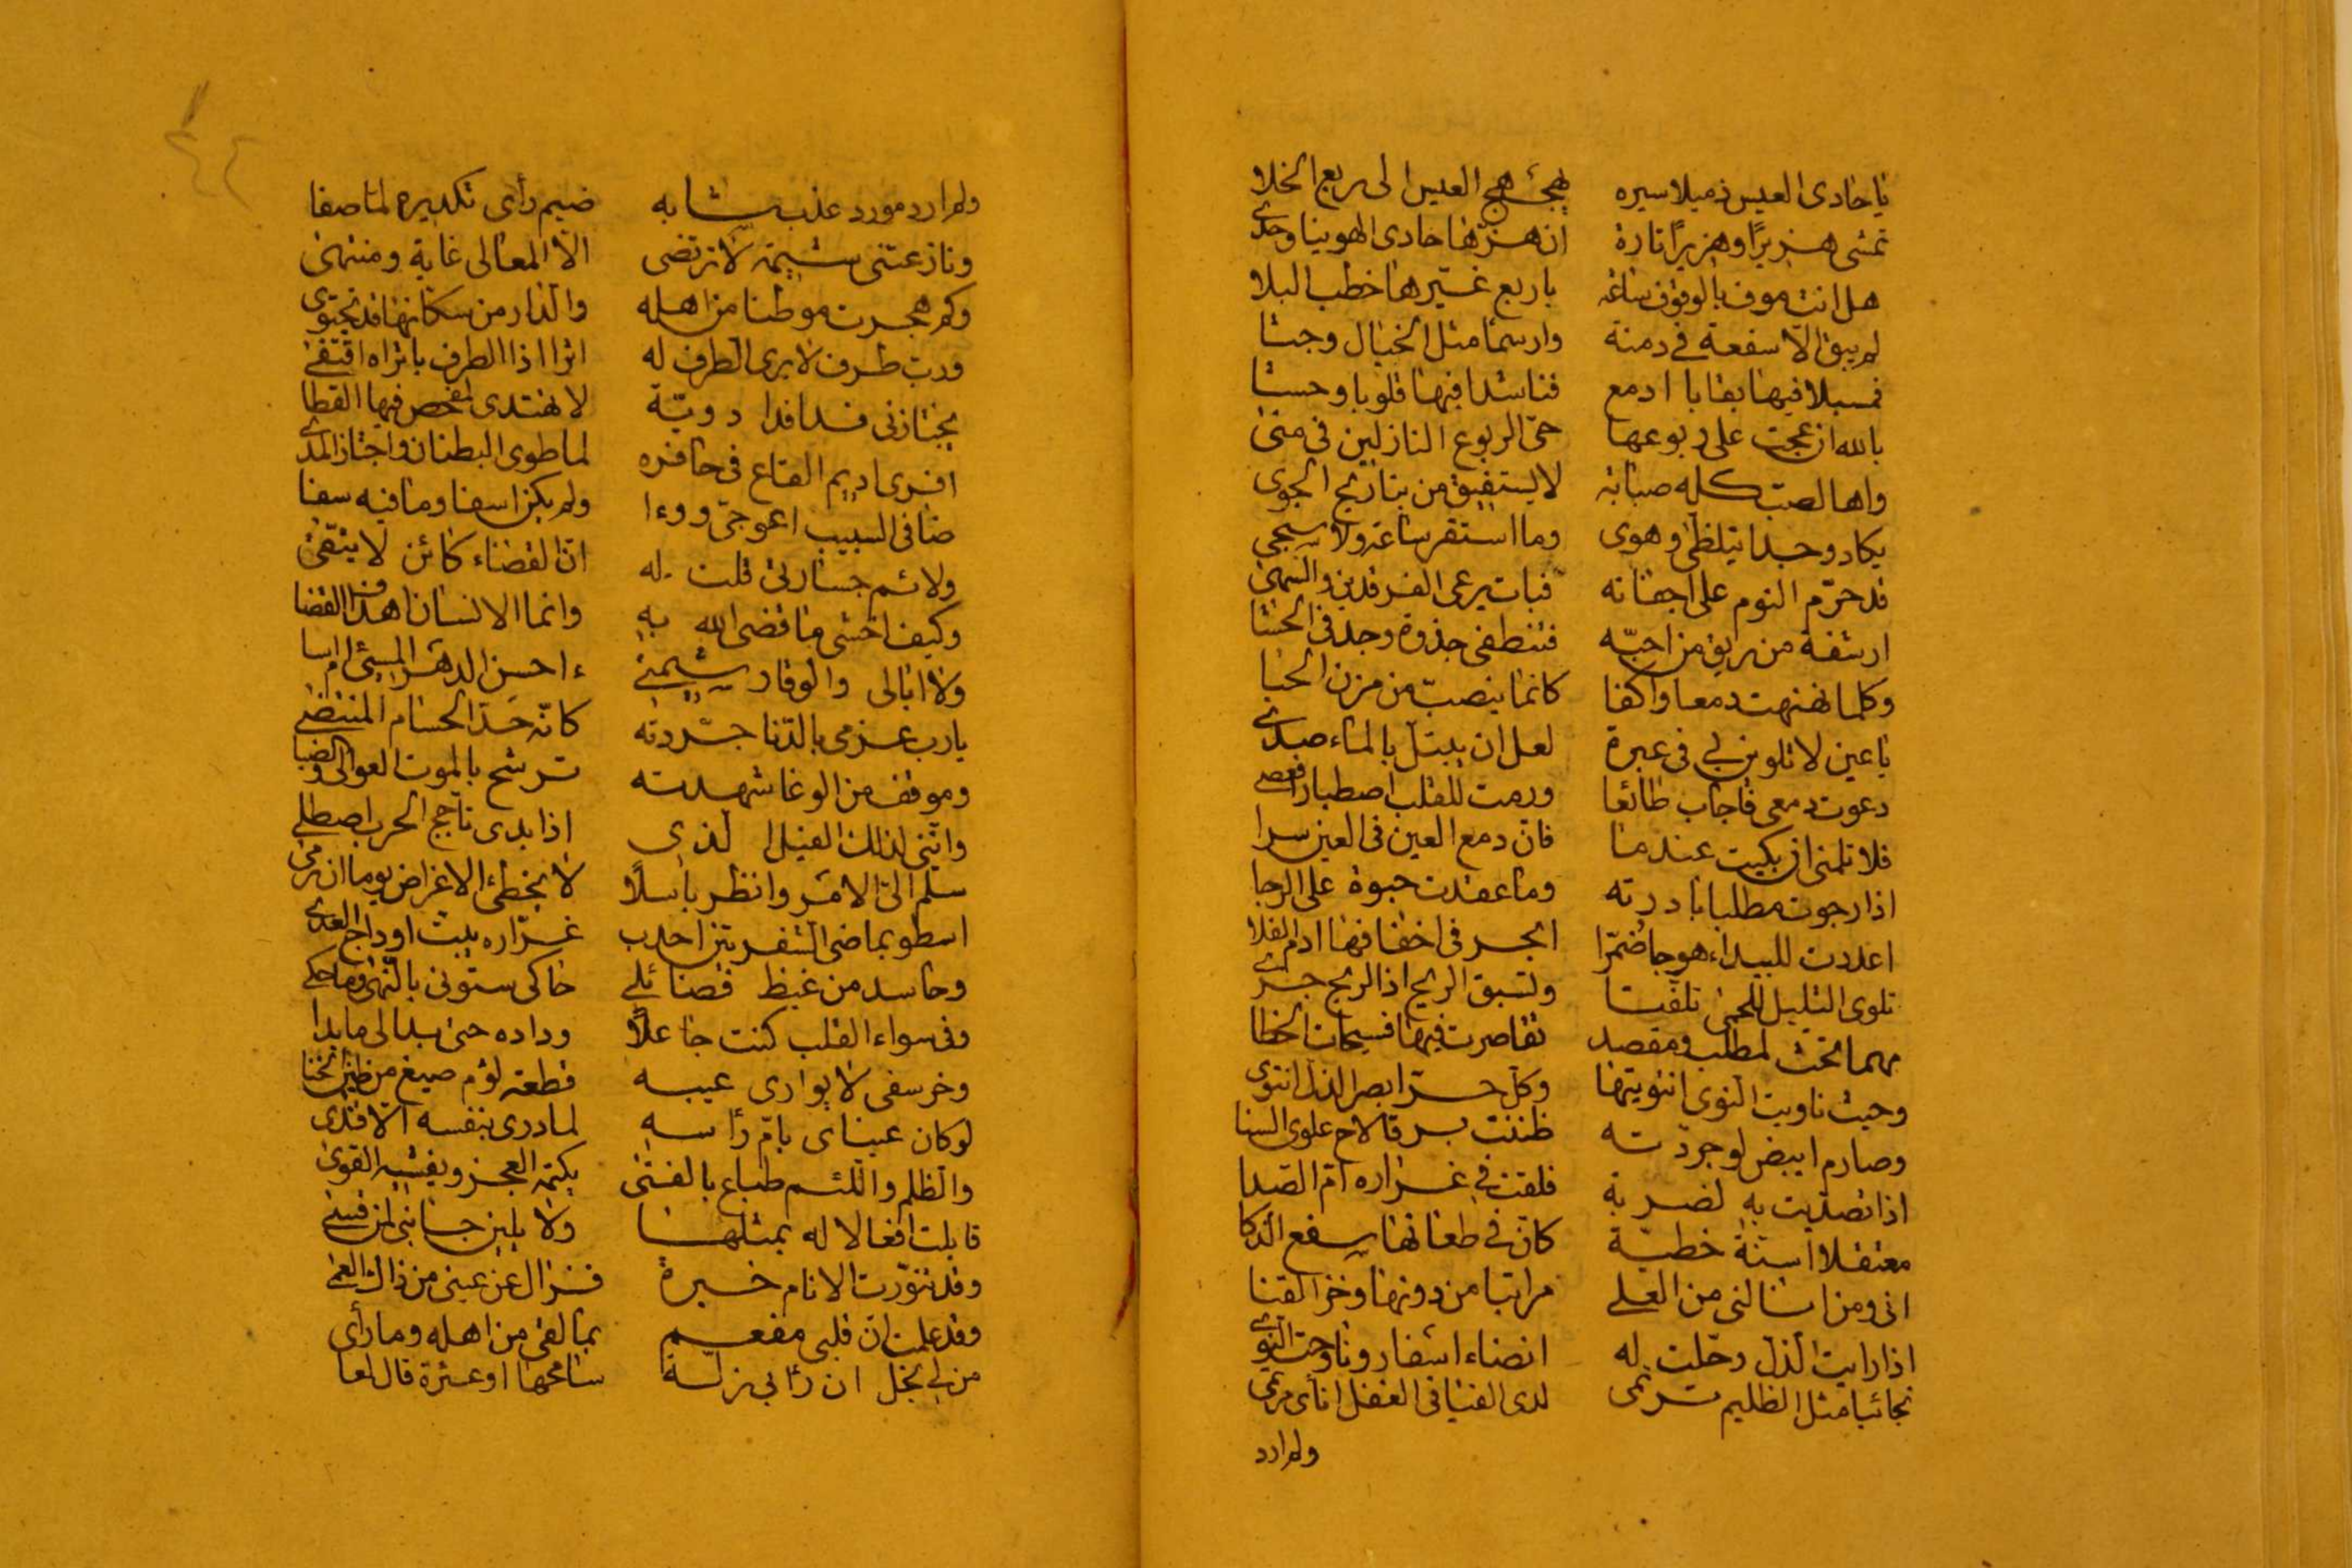 يا حادى العيس ذميلا سيره يهيجها هج العيس الى ربع الخلا
تمشى هزيزًا وهزيزًا تارة ان هزها حادى الهوينا وحدى
هل انت موف بالوقوف ساعة يا ربع غيرها خطب البلا
لم يبق الّا سفعة فى دمنة وارسما مثل الخيال وجثا
فسبلا فيها بقايا ادمع فناشدا فيها قلوبا وحشا
بالله ان عجت على ربوعها حى الربوع النازلين فى منى
واها لصب كله صبابة لا يستفيق من تباريح الجوى
يكاد وجدا يتلظى وهوى وما استقر ساعة ولا سجى
قد حرّم النوم على اجفانه فبات يرعى الفرقدين والسهى
ارشفة من ريق من احبّه فتنطفى جذوة وجد فى الحشا
وكلما نهنهت دمعا واكفا كانما ينصبّ من مزن الحيا
يا عين لا تلوين لى فى عبرة لعل ان يبتل بالماء صدى
دعوت دمعى فاجاب طائعا ورمت للقلب اصطبارا فعصى
فلا تلمنى ان بكيت عندما فان دمع العين فى العين سرا
اذا رجوت مطلبا بادرته وما عقدت حبوة على الرجا
اعددت للبيداء هوجا ضمّرا انجر فى اخفافها ادم الفلا
تلوى التليل للحمى تلفتا وتسبق الريح اذا الريح جرى
مهما انتحت لمطلب ومقصد تقاصرت فيها فسيحات الخطا
وحيث ناويت النوى انتويتها وكل حر ابصر الذل انتوى
وصارم ابيض لو جردته ظننت برقا لاح علوى السنا
اذا تصديت به لضربة فلقت فى غراره ام الصدا
معتقلا اسنة خطية كان فى طعانها سفع الذكا
انى ومن انالنى من العلى مراتبا من دونها وخز القنا
اذا رايت الذل رحّلت له انضاء اسفار وناوحت النوى
نجائبا مثل الظليم ترتمى لدى الفيافى الغفل انأى مرتمى
ولم ارد
ولم ارد مورد عذب شابه ضيم رأى تكديره لما صفا
ونازعتنى شيمة لا ترتضى الا المعالى غاية ومنتهى
وكم هجرت موطنا من اهله والدار من سكانها قد تجتوى
ورب طرف لا يرى الطرف له اثرا اذا الطرف باثراه اقتفى
يجتازنى فدافدا دويّة لا تهتدى لمفحص فيها القطا
افرى اديم القاع فى حافره لما طوى البطنان واجتاز المدى
ضافى السبيب اعوجىّ ووءا ولم يكن اسفا وما فيه سفا
ولائم جسارتى قلت له ان القضاء كائن لا يتقى
وكيف اخشى ما قضى الله به وانما الانسان اهداف القضا
ولا ابالى والوقار شيمتى ءاحسن الدهر المسئ ام اسا
يا رب عزمى بالدنا جردته كانّه حدّ الحسام المنتضى
وموقف من الوغا شهدته ترشح بالموت العوالى والضبا
واننى لذلك القيل الذى اذا بدى تأجج الحرب اصطلى
سلم الىّ الامر وانظر باسلًا لا يخطئ الاغراض يوما ان رمى
اسطو بماضى الشفرتين احدب غراره يبت اوداج العدى
وحاسد من غيظ فضائلى حاكى ستونى بالنهى وما حكى
وفى سواء القلب كنت جاعلًا وداده حتى بدا لى ما بدا
وخر سفى لا يوارى عيبه قطعة لؤم صيغ من طين الخنا
لو كان عيناى بام رأسه لما درى بنفسه الا قذى
والظلم واللئم طباع بالفتى يكتمه العجز ويفشيه القوى
قابلت افعالا له بمثلها ولا يلين جانبى لمن قسى
وقد تنورت الانام خبرة فزال عن عينى من ذاك العمى
وقد علمت ان قلبى مفعم بما لقى من اهله وما رأى
من لى بخل ان رأى بى زلة سامحها او عثرة قال لعا